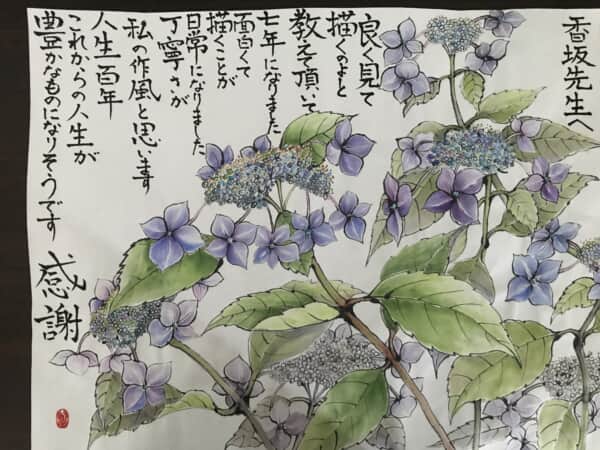 香坂先生へ
良く見て
描くのよと
教えて頂いて
七年になりました
面白くて
描くことが
日常になりました
丁寧さが
私の作風と思います
人生百年
これからの人生が
豊かなものになりそうです
感謝